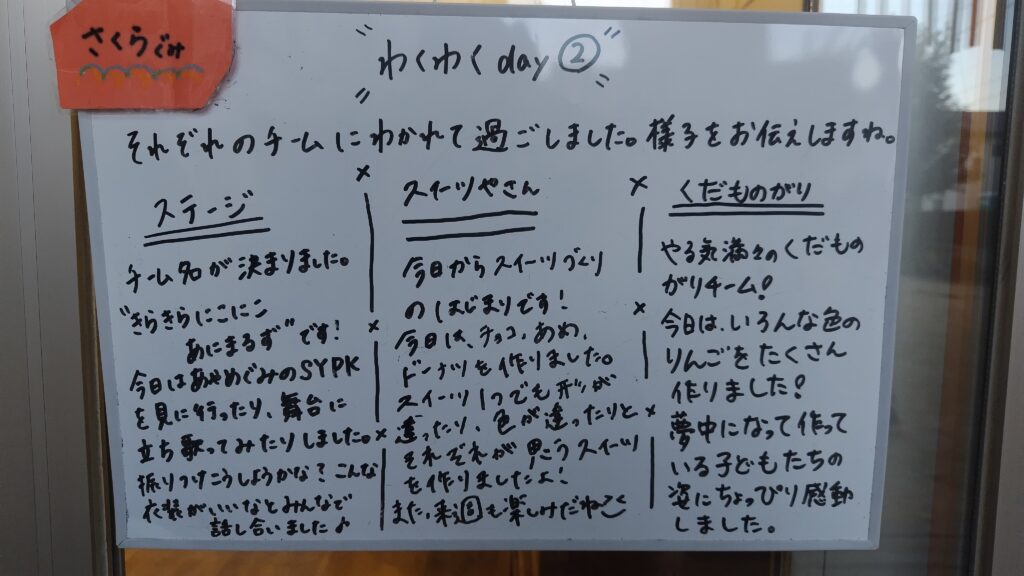 さくらぐみ
わくわく day ②
それぞれのチームにわかれて過ごしました。様子をお伝えしますね。
ステージ
チーム名が決まりました。
"きらきらにこにこ
あにまるず"です!
今日はあやめぐみのSYPK
を見に行ったり、舞台に
立ち歌ってみたりしました。
振りつけこうしようかな?こんな
衣装がいいなとみんなで
話し合いました♪
スイーツやさん
今日からスイーツづくり
のはじまりです!
今日は、チョコ、あめ、
ドーナツを作りました。
スイーツ1つでも形が
違ったり、色が違ったりと
それぞれが思うスイーツ
を作りましたよ!
また、来週も楽しみだね
くだものがり
やる気満々のくだもの
がりチーム!
今日は、いろんな色の
りんごをたくさん
作りました!
夢中になって作って
いる子どもたちの
姿にちょっぴり感動
しました。